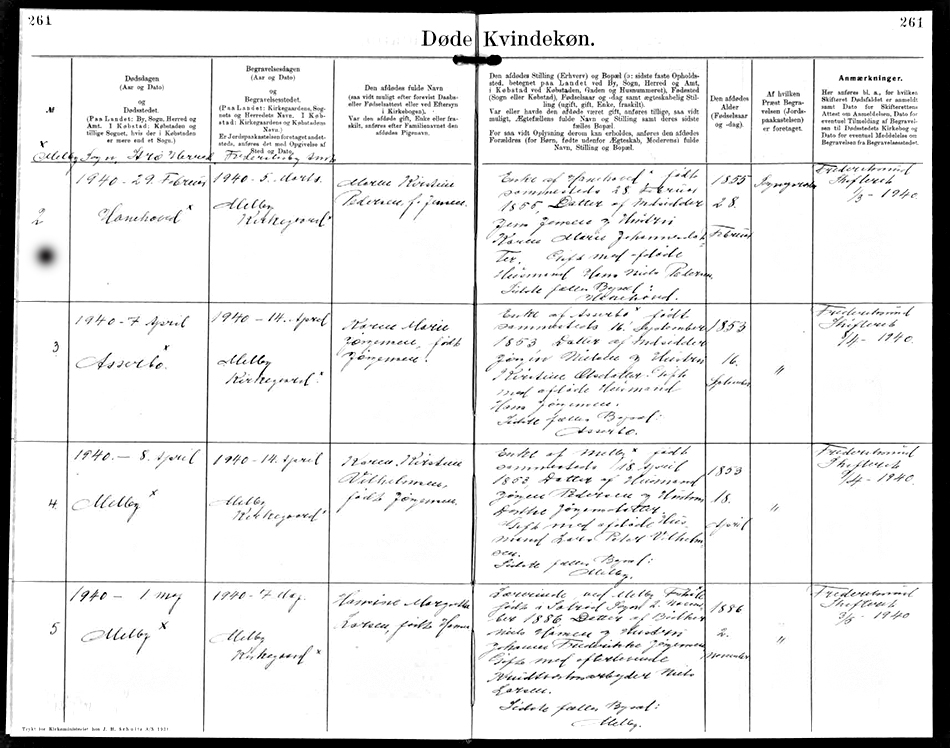 261
261
Døde Kvindekøn.
№
Dødsdagen
(Aar og Dato)
og
Dødsstedet.
(Paa Landet: By, Sogn, Herred og
Amt. I Købstad: Købstaden og
tillige Sognet, hvis der i Købstaden
er mere end et Sogn.)
Begravelsesdagen
(Aar og Dato)
og
Begravelsesstedet.
(Paa Landet: Kirkegaardens, Sog-
nets og Herredets Navn. I Køb-
stad: Kirkegaardens og Købstadens
Navn.)
Er Jordspaakastelsen foretaget andet-
steds, anføres det med Opgivelse af
Sted og Dato.
Den afdødes fulde Navn
(saa vidt muligt efter forevist Daabs-
eller Fødselsattest eller ved Eftersyn
i Kirkebogen).
Var den afdøde gift, Enke eller fra-
skilt, anføres efter Familienavnet den
afdødes Pigenavn.
Den afdødes Stilling (Erhverv) og Bopæl (ɔ: sidste faste Opholds-
sted, betegnet paa Landet ved By, Sogn, Herred og Amt,
i Købstad ved Købstaden, Gaden og Husnummeret), Fødested
(Sogn eller Købstad), Fødselsaar og -dag samt ægteskabelig Stil-
ling (ugift, gift, Enke, fraskilt).
Var eller havde den afdøde været gift, anføres tillige, saa vidt
muligt, Ægtefællens fulde Navn og Stilling samt deres sidste
fælles Bopæl.
For saa vidt Oplysning derom kan erholdes, anføres den afdødes
Forældres (for Børn, fødte udenfor Ægteskab, Moderens) fulde
Navn, Stilling og Bopæl.
Den
afdødes
Alder
(Fødselsaar
og -dag).
Af hvilken
Præst Begra-
velsen (Jords-
paakastelsen)
er foretaget.
Anmærkninger.
Her anføres bl. a., for hvilken
Skifteret Dødsfaldet er anmeldt
samt Dato for Skifterettens
Attest om Anmeldelsen, Dato for
eventuel Tilmeldelse af Begravelsen
til Dødsstedets Kirkebog og
Dato for eventuel Meddelelse om
Begravelsen fra Begravelsesstedet.
x Melby Sogn, Strø Herred Frederiksborg Amt
2
1940 - 29. Februar
Hanehoved x
1940 - 5. Marts.
Melby
Kirkegaard x
Maren Kirstine
Petersen f. Jensen.
Enke af Hanehoved x født
sammesteds 28 Februar
1855 Datter af Indsidder
Jens Jensen og Hustru
Karen Marie Johannesdat-
ter. Gift med afdøde
Husmand Hans Niels Petersen
Sidste fælles Bopæl:
Hanehoved.
1855
28.
Februar
Frederiksund
Skifteret
1/3 - 1940.
3
1940 - 7 April
Asserbo. x
1940 - 14. April
Melby
Kirkegaard. x
Karen Marie
Jørgensen, født
Jørgensen.
Enke af Asserbo x født
sammesteds 16. September
1853 Datter af Indsidder
Jørgen Nielsen og Hustru
Kirstine Olsdatter. Gift
med afdøde Husmand
Hans Jørgensen.
Sidste fælles Bopæl:
Asserbo.
1853
16.
September
"
Frederiksund
Skifteret
/4 - 1940.
4
1940. - 8. April
Melby x
1940 - 14. April
Melby
Kirkegaard x
Karen Kirstine
Vilhelmsen,
født Jørgensen.
Enke af Melby x født
sammesteds 18 April
1853 Datter af Husmand
Jørgen Pedersen og Hustru
Dorthe Jørgensdatter.
Gift med afdøde Hus-
mand Lars Peter Vilhelm-
sen.
Sidste fælles Bopæl:
Melby.
1853
18.
April
"
Frederiksund
Skifteret
/4 - 1940.
5
1940 - 1 maj
Melby x
1940 - 7 Maj.
Melby
Kirkegaard x
Hansine Margrethe
Larsen, født Hansen
Lærerinde ved Melby
født i Sogn 2. Novem-
ber 1886 Datter af
Niels Hansen og Hustru
Johanne Frederikke Jørgensen
Gift med efterlevende
Niels
Larsen.
Sidste fælles Bopæl:
Melby.
1886
2.
November
"
Frederiksund
Skifteret
/5 - 1940
Trykt for Kirkeministeriet hos J. H. Schultz A/S